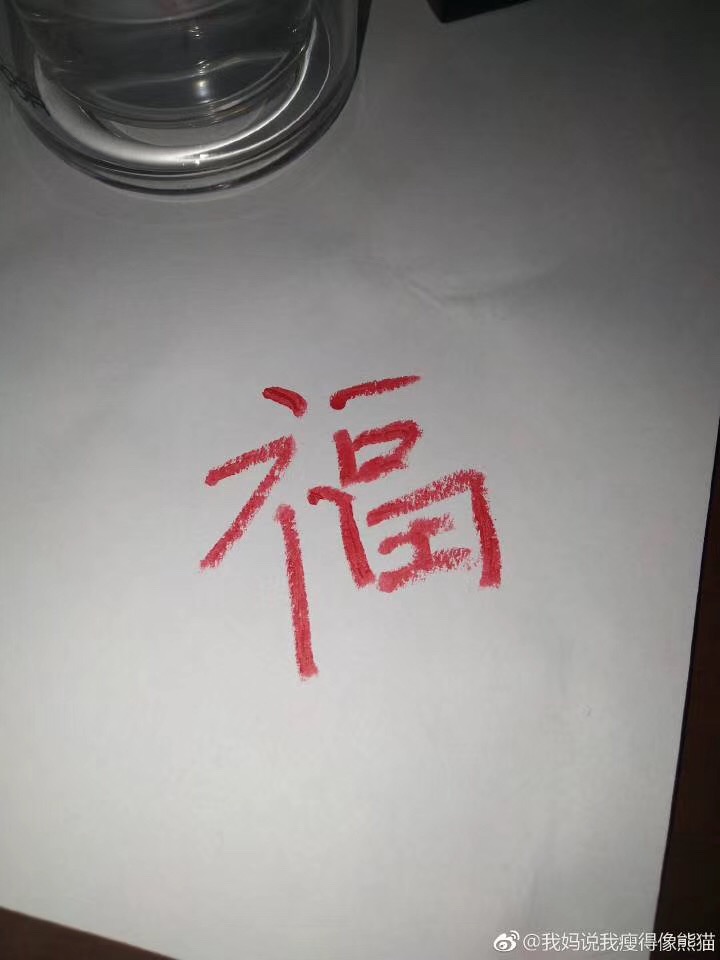 福
@我妈说我瘦得像熊猫